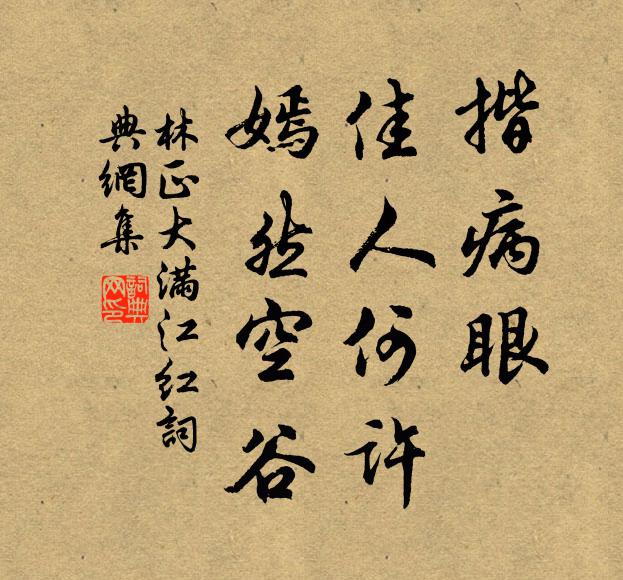 揩病眼
佳人何許
嫣然空谷
林正大滿江紅詞
典網集
詞典網印